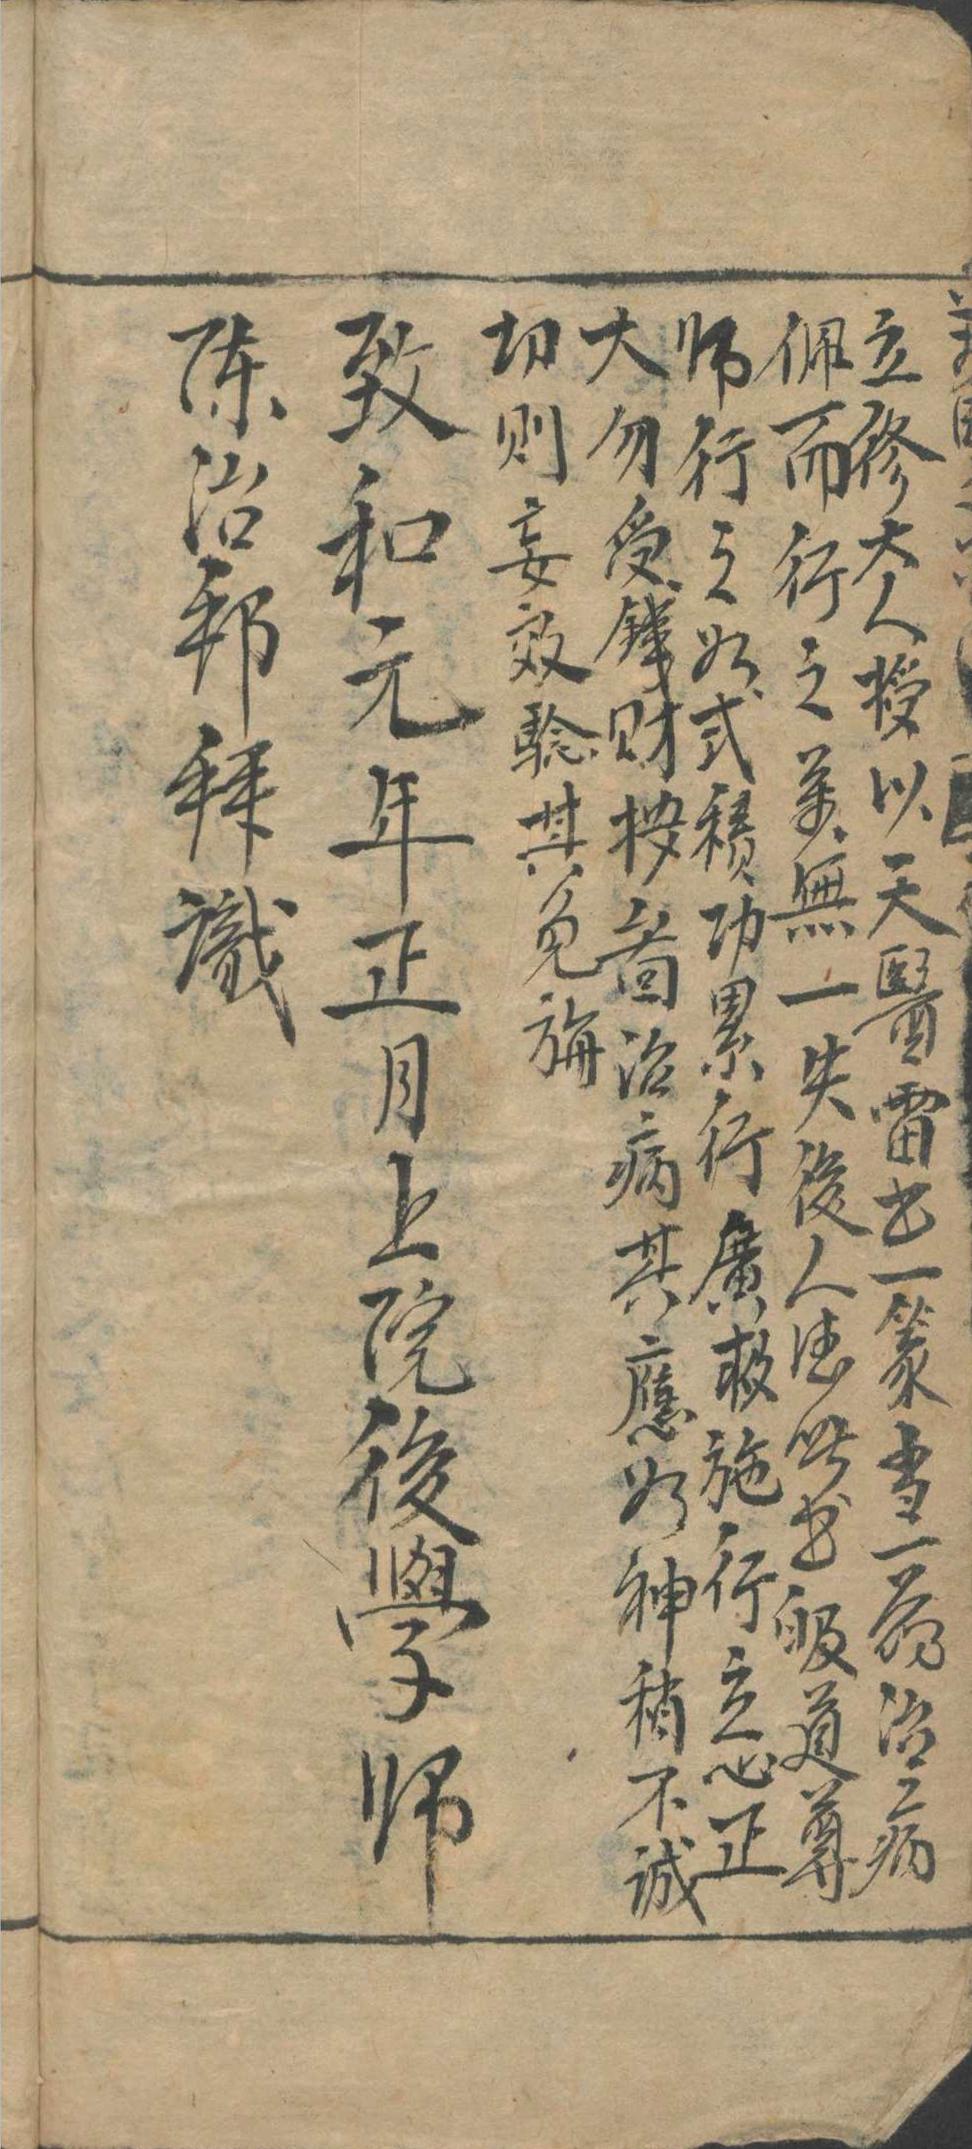 立修大人授以天醫雷書一篆書一葯治一病
佩而行之萬無一失後人德此書皈道尊
师行之如式積功累行廣救施行立心正
大勿受錢财按啚治病其應如神稍不誠
切则妄效騐其免旃
致和元年正月上院後學师
陈治邦拜識